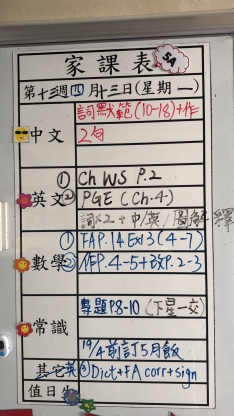 家課表
5A
第十三週四月十三日(星期一)
詞默範(10-18)+作
中文 2句
① Ch WS P.2
英文 ② PGE (Ch.4)
詞x2+中/英/圖解釋
① FA P.14 Ex13 (4-7)
數學 ② NFP.4-5+改P.2-3
專題P.8-10 (下星一交)
常識
19/4前訂5月飯
其它 英③ Dict+FA corr+sign
值日生